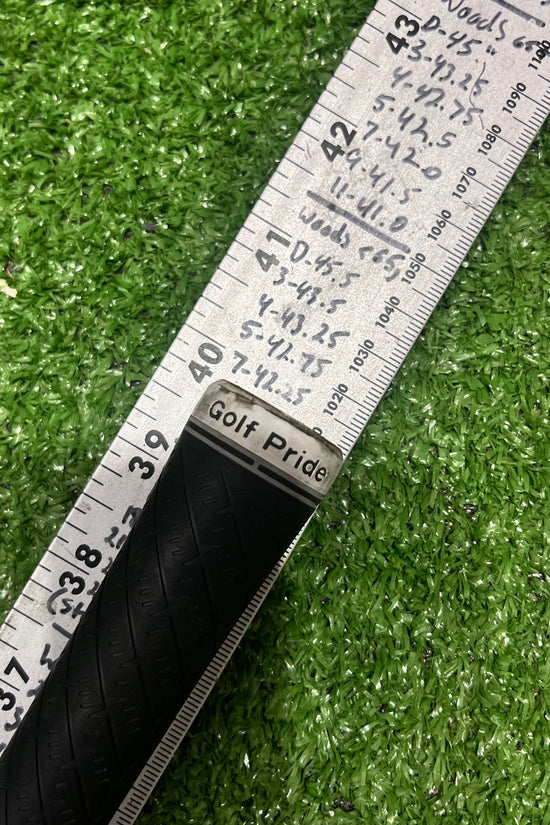 Woods
D-45"
3-43.25
4-42.75
5-42.5
7-42.0
9-41.5
11-41.0
Woods <65,
D-45.5
3-43.5
4-43.25
5-42.75
7-42.25
Golf Pride
43
42
41
40
39
38
37
110|0
109|0
108|0
107|0
106|0
105|0
104|0
103|0
102|0